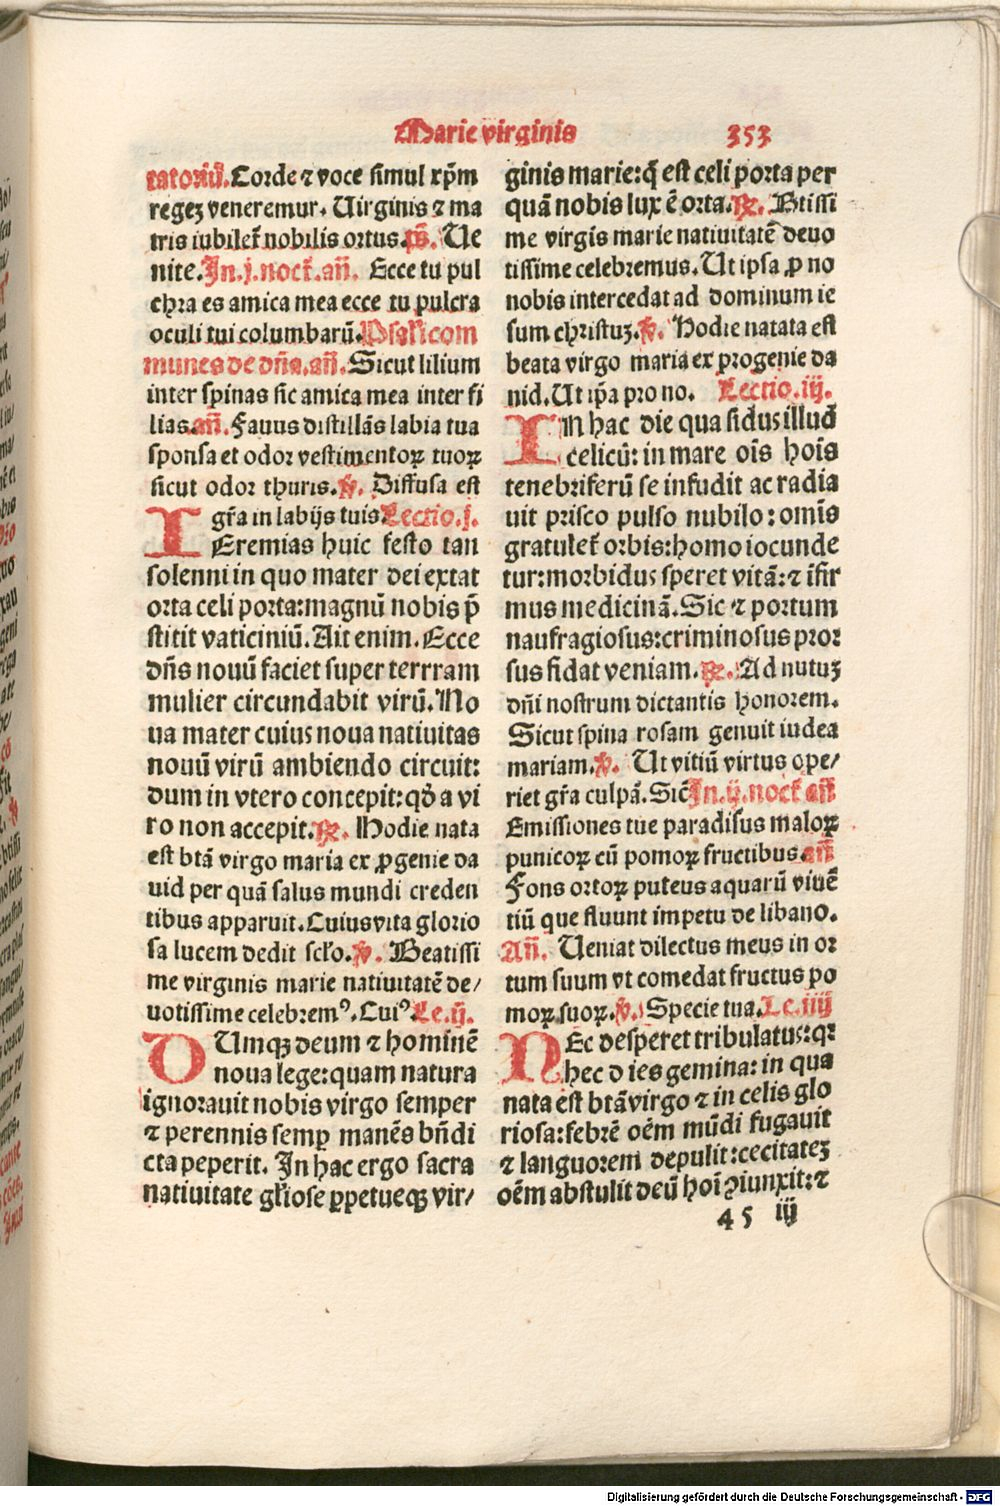 Marie virginis 353
tatoriū. Corde ⁊ voce simul xp̄m
regeꝫ veneremur. Uirginis ⁊ ma
tris iubilet᷑ nobilis ortus. ps̄. Ue
nite. In .j. noct᷑. añ. Ecce tu pul
chra es amica mea ecce tu pulcra
oculi tui columbarū. Psal̓i com
munes de dn̄a. añ. Sicut lilium
inter spinas sic amica mea inter fi
lias. añ. Fauus distillās labia tua
sponsa et odor vestimentoꝝ tuoꝝ
sicut odor thuris. ℣. Diffusa est
gr̄a in labijs tuis. Lectio .j.
IEremias huic festo tan
solenni in quo mater dei extat
orta celi porta: magnū nobis p̄
stitit vaticiniū. Ait enim. Ecce
dn̄s nouū faciet super terrram
mulier circundabit virū. No
ua mater cuius noua natiuitas
nouū virū ambiendo circuit:
dum in vtero concepit: qd̄ a vi
ro non accepit. ℟. Hodie nata
est btā virgo maria ex ꝓgenie da
uid per quā salus mundi creden
tibus apparuit. Cuius vita glorio
sa lucem dedit scl̓o. ℣. Beatissi
me virginis marie natiuitatē de/
uotissime celebremꝰ. Cuiꝰ. Le. ij.
DUmqꝫ deum ⁊ hominē
noua lege: quam natura
ignorauit nobis virgo semper
⁊ perennis semꝑ manēs bn̄di
cta peperit. In hac ergo sacra
natiuitate gl̓iose ꝑpetueqꝫ vir/
ginis marie: q̄ est celi porta per
quā nobis lux ē orta. ℟. Btissi
me virgīs marie natiuitatē deuo
tissime celebremus. Ut ipsa ꝓ no
nobis intercedat ad dominum ie
sum christuꝫ. ℣. Hodie natata est
beata virgo maria ex progenie da
nid. Ut ip̄a pro no. Lectio .iij.
IN hac die qua sidus illud
celicū: in mare oīs hoīs
tenebriferū se infudit ac radia
uit prisco pulso nubilo: omīs
gratulet᷑ orbis: homo iocunde
tur: morbidus speret vitā: ⁊ īfir
mus medicinā. Sic ⁊ portum
naufragiosus: criminosus pror
sus fidat veniam. ℟. Ad nutuꝫ
dn̄i nostrum dictantis honorem.
Sicut spina rosam genuit iudea
mariam. ℣. Ut vitiū virtus ope/
riet gr̄a culpā. Sic̄ In .ij. noct᷑ añ
Emissiones tue paradisus maloꝝ
punicoꝝ cū pomoꝝ fructibus. añ
Fons ortoꝝ puteus aquarū viuē
tiū que fluunt impetu de libano.
Añ. Ueniat dilectus meus in or
tum suum vt comedat fructus po
moꝝ suoꝝ. ℣. Specie tua. Le. iiij
NEc desperet tribulatus: qꝛ
hec dies gemina: in qua
nata est btā virgo ⁊ in celis glo
riosa: febrē oēm mūdi fugauit
⁊ languorem depulit: cecitateꝫ
oēm abstulit deū hoī ꝯiunxit: ⁊
45 iij
Digitalisierung gefördert durch die Deutsche Forschungsgemeinschaft - DFG